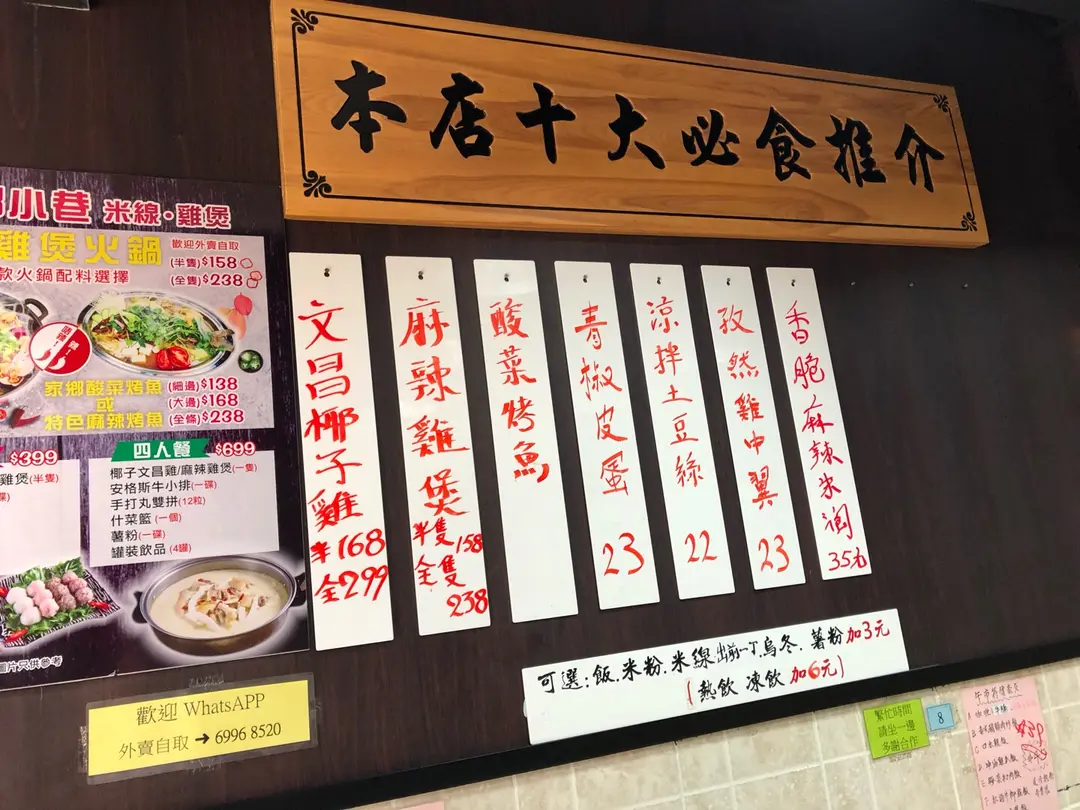 本店十大必食推介
小巷 米線·雞煲
雞煲火鍋
歡迎外賣自取
(半隻)$158
(全隻)$238
款火鍋配料選擇
家鄉酸菜烤魚 (細邊)$138
或 (大邊)$168
特色麻辣烤魚 (全條)$238
$399
雞煲(半隻)
四人餐 $699
椰子文昌雞/麻辣雞煲(一隻)
安格斯牛小排(一碟)
手打丸雙拼(12粒)
什菜籃(一個)
薯粉(一碟)
罐裝飲品(4罐)
圖片只供參考
文昌椰子雞
半168
全299
麻辣雞煲
半隻158
全隻238
酸菜烤魚
青椒皮蛋
23
涼拌土豆絲
22
孜然雞中翼
23
香脆麻辣朱潤
35元
可選:飯.米粉.米線.出前一丁.烏冬.薯粉加3元
(熱飲 凍飲 加6元)
歡迎 WhatsAPP
外賣自取 → 6996 8520
繁忙時間
請坐一邊
多謝合作
8